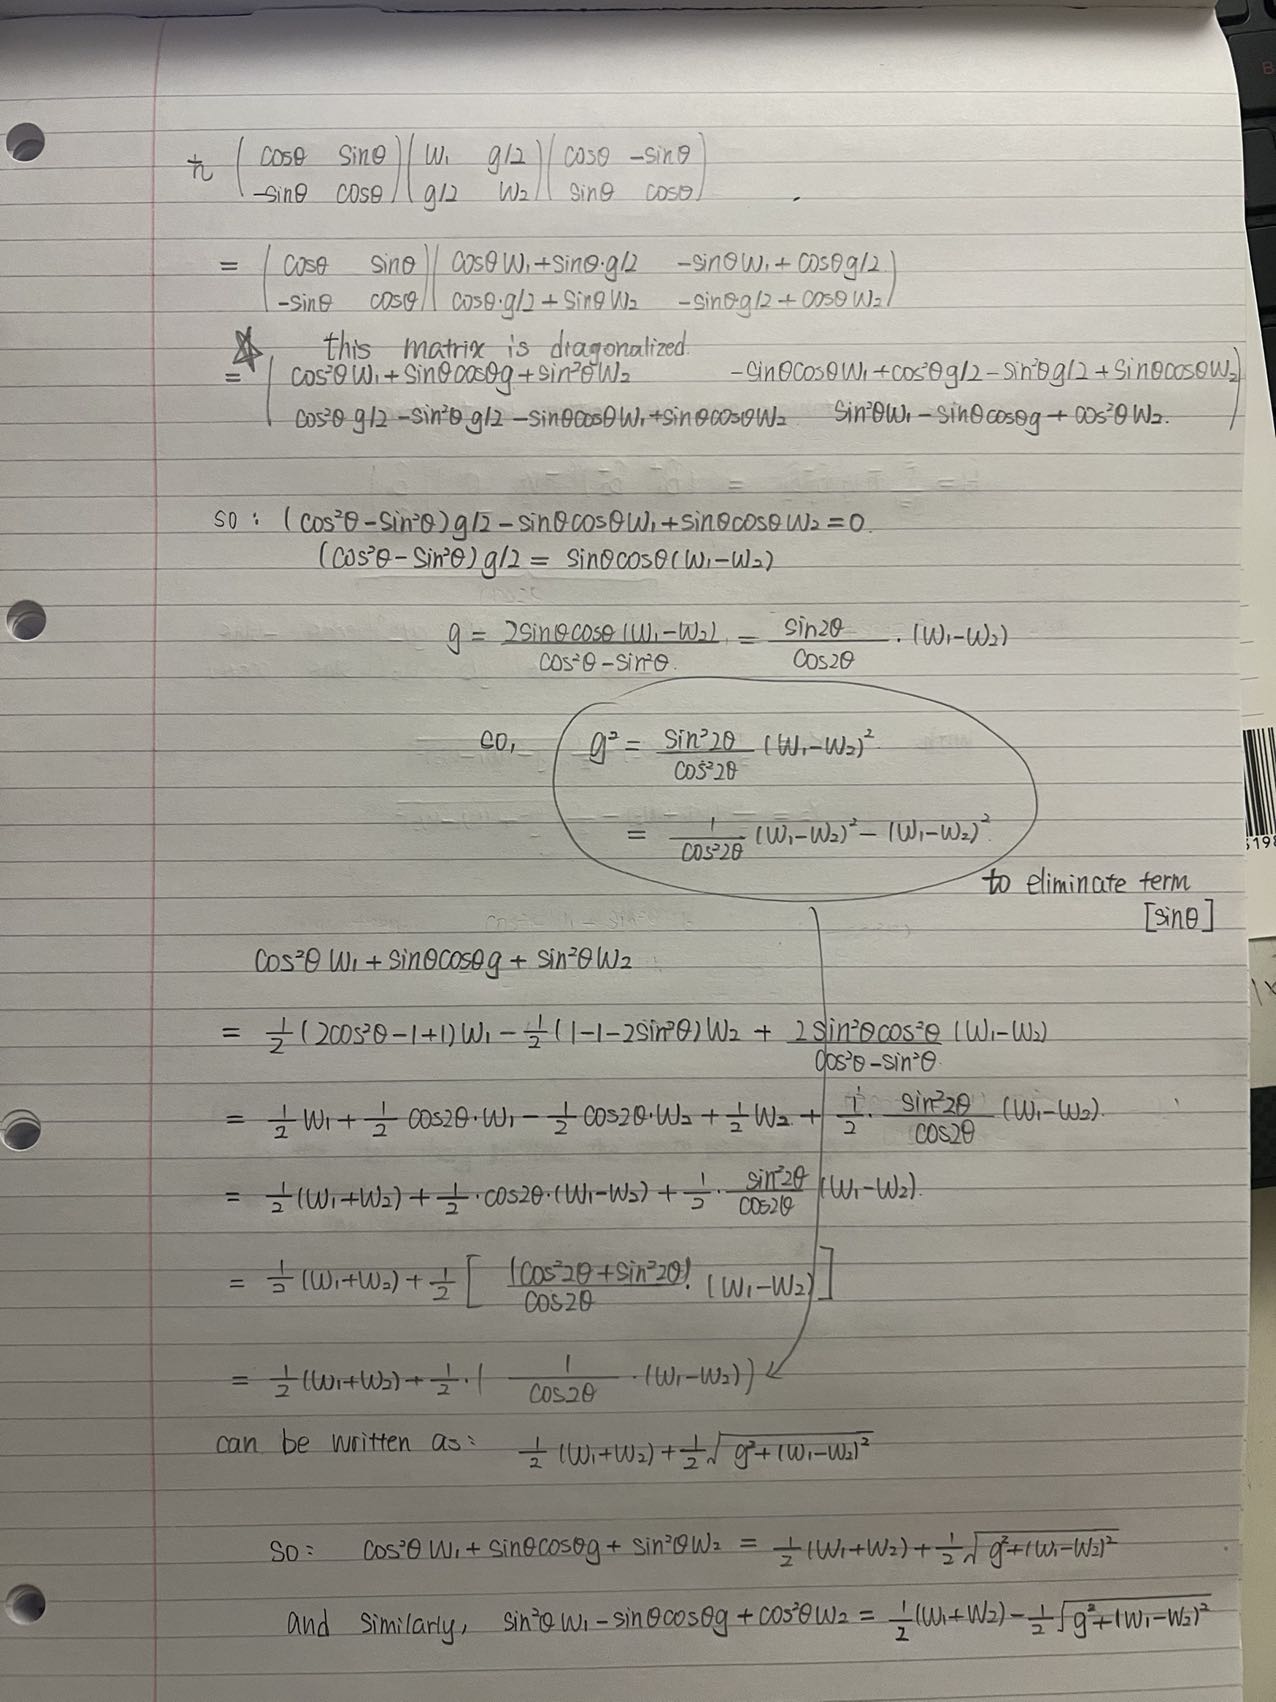 ħ ( cosθ sinθ ) ( W₁ g/2 ) ( cosθ -sinθ )
( -sinθ cosθ ) ( g/2 W₂ ) ( sinθ cosθ )
= ( cosθ sinθ ) ( cosθW₁+sinθ·g/2 -sinθW₁+cosθg/2 )
( -sinθ cosθ ) ( cosθ·g/2+sinθW₂ -sinθg/2+cosθW₂ )
☆ this matrix is diagonalized.
= ( cos²θW₁+sinθcosθg+sin²θW₂ -sinθcosθW₁+cos²θg/2-sin²θg/2+sinθcosθW₂ )
( cos²θg/2-sin²θg/2-sinθcosθW₁+sinθcosθW₂ sin²θW₁-sinθcosθg+cos²θW₂. )
so: (cos²θ-sin²θ)g/2-sinθcosθW₁+sinθcosθW₂=0.
(cos²θ-sin²θ)g/2 = sinθcosθ(W₁-W₂)
g = 2sinθcosθ(W₁-W₂) / cos²θ-sin²θ. = sin2θ / cos2θ · (W₁-W₂)
so, g² = sin²2θ / cos²2θ (W₁-W₂)²
= 1 / cos²2θ (W₁-W₂)²-(W₁-W₂)²
to eliminate term
[sinθ]
cos²θW₁+sinθcosθg+sin²θW₂
= 1/2 (2cos²θ-1+1)W₁ - 1/2 (1-1-2sin²θ)W₂ + 2sin²θcos²θ / cos²θ-sin²θ. (W₁-W₂)
= 1/2 W₁ + 1/2 cos2θ·W₁ - 1/2 cos2θ·W₂ + 1/2 W₂ + 1/2 · sin²2θ / cos2θ (W₁-W₂).
= 1/2 (W₁+W₂) + 1/2 · cos2θ·(W₁-W₂) + 1/2 · sin²2θ / cos2θ (W₁-W₂).
= 1/2 (W₁+W₂) + 1/2 [ (cos²2θ+sin²2θ) / cos2θ · (W₁-W₂) ]
= 1/2 (W₁+W₂) + 1/2 · ( 1 / cos2θ · (W₁-W₂) )
can be written as: 1/2 (W₁+W₂) + 1/2 √(g²+(W₁-W₂)²)
so: cos²θW₁+sinθcosθg+sin²θW₂ = 1/2 (W₁+W₂) + 1/2 √(g²+(W₁-W₂)²)
and similarly, sin²θW₁-sinθcosθg+cos²θW₂ = 1/2 (W₁+W₂) - 1/2 √(g²+(W₁-W₂)²)